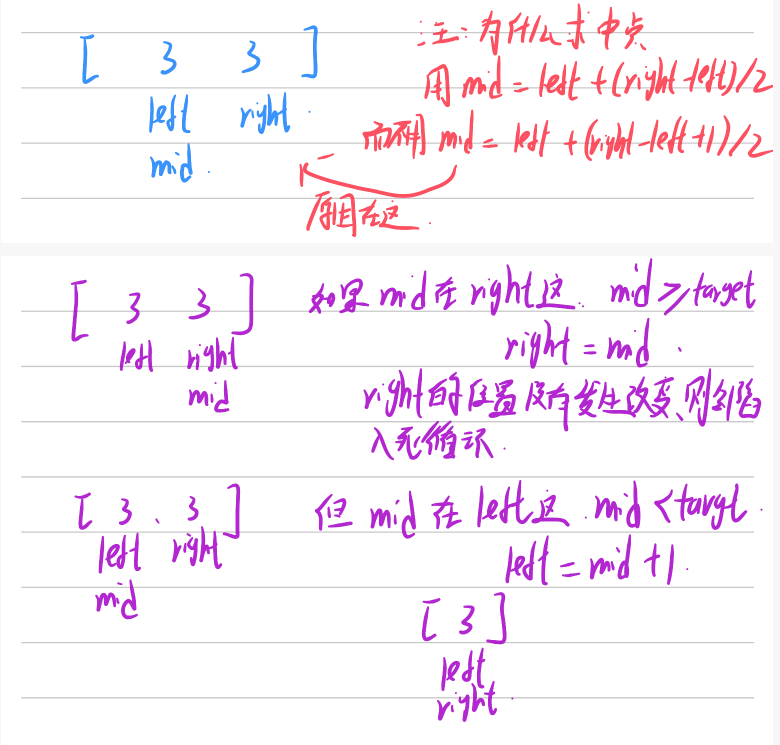 [ 3 3 ]
left right
mid
注:为什么求中点
用 mid = left + (right-left)/2
而不用 mid = left + (right-left+1)/2
原因在这
[ 3 3 ]
left right
mid
如果 mid 在 right 这 mid >= target
right = mid
right 的位置没有发生改变、则会陷
入死循环.
[ 3、3 ]
left right
mid
但 mid 在 left 这 mid < target.
left = mid + 1.
[ 3 ]
left
right